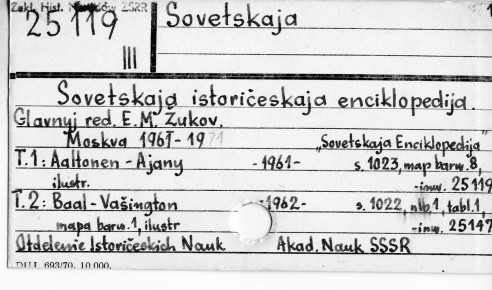 Zakł. Hist. Narodów ZSRR
25119
III
Sovetskaja
1
Sovetskaja istoričeskaja enciklopedija.
Glavnyj red. E. M. Žukov.
Moskva 1961-1971 „Sovetskaja Enciklopedija"
T.1: Aaltonen - Ajany -1961- s. 1023, map barw. 8,
ilustr. -inw. 25119
T.2: Baal - Vašington -1962- s. 1022, tabl. 1,
mapa barw. 1, ilustr -inw. 25147
Otdelenie Istoričeskich Nauk Akad. Nauk SSSR
693/70. 10.000.